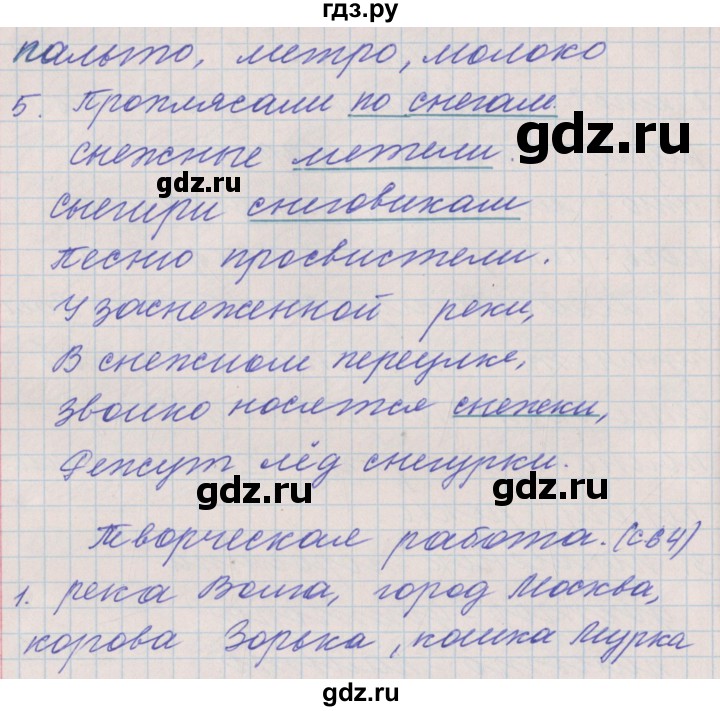 гдз.ру
пальто, метро, молоко
5. Проплясали по снегам
gdz.ru
снежные метели.
gdz.ru
снегири снеговикам
Песню просвистели.
У заснеженной реки,
В снежном переулке,
Звонко носятся снежки,
Режут лёд снегурки.
gdz.ru gdz.ru
Творческая работа. (с 64)
1. река Волга, город Москва,
корова Зорька, кошка Мурка
gdz.ru